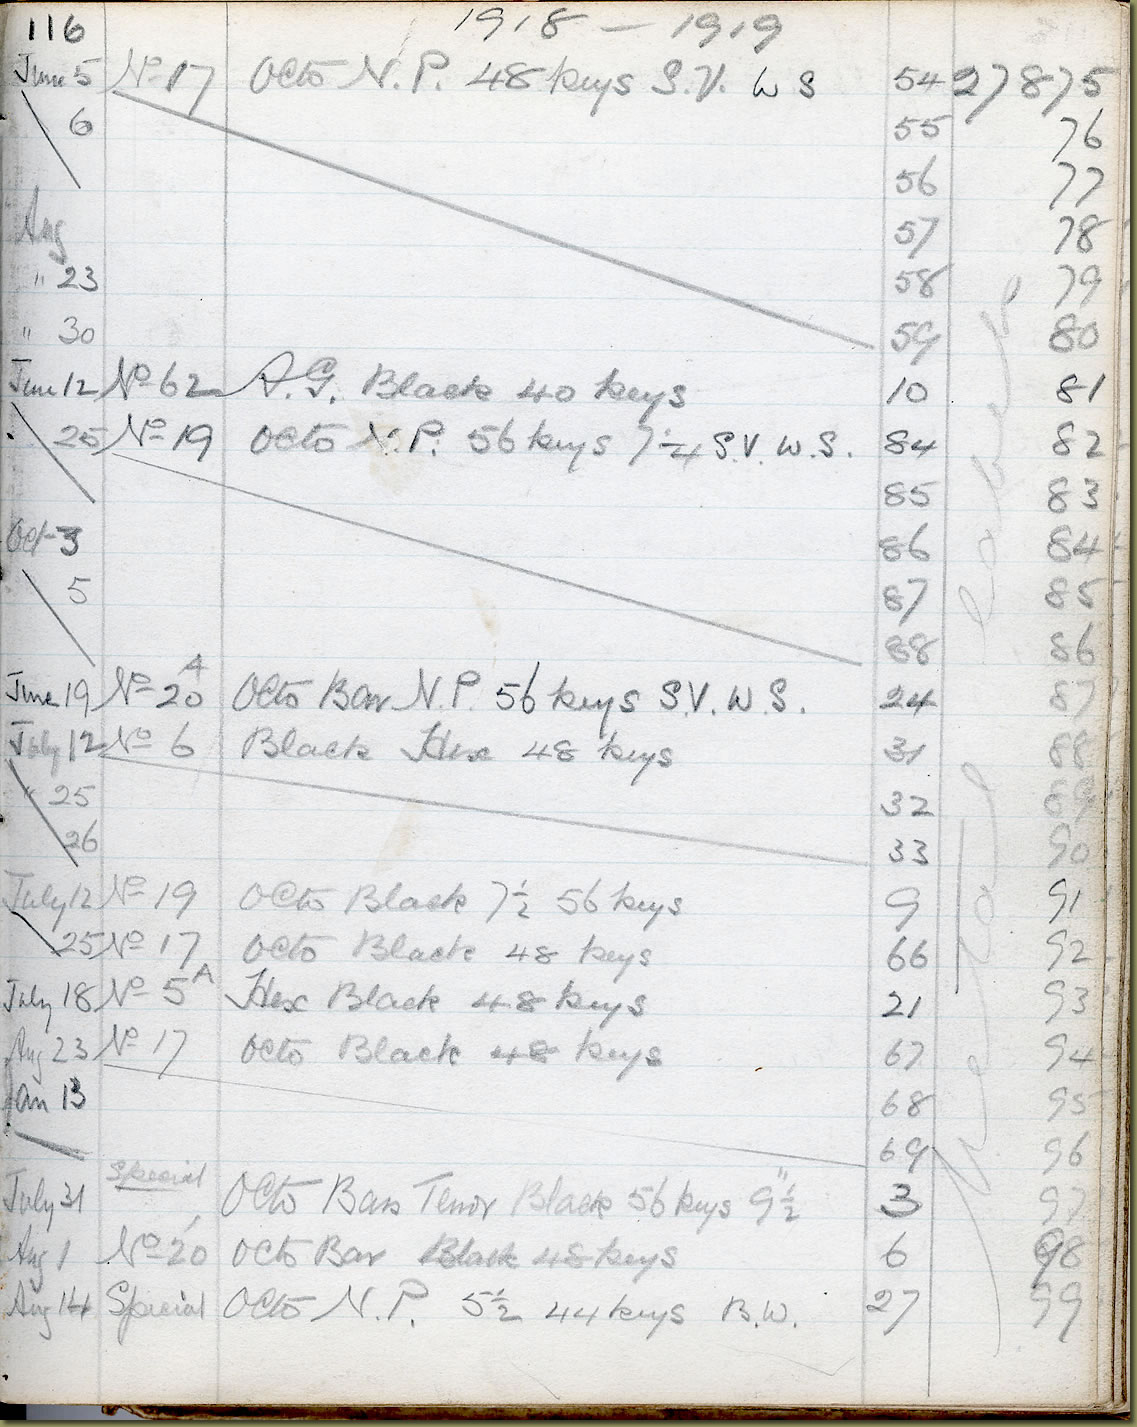 116 1918 — 1919
June 5 No 17 Octo N.P. 48 keys S.V. W S 54 27875
6 55 76
56 77
Aug 57 78
" 23 58 79
" 30 59 80
June 12 No 62 A.G. Black 40 keys 10 81
25 No 19 Octo N.P. 56 keys 7 1/4 S.V. W.S. 84 82
85 83
Oct 3 86 84
5 87 85
88 86
June 19 No 20 A Octo Bar N.P. 56 keys S.V. W.S. 24 87
July 12 No 6 Black Hex 48 keys 31 88
" 25 32 89
26 33 90
July 12 No 19 Octo Black 7 1/2 56 keys 9 91
25 No 17 Octo Black 48 keys 66 92
July 18 No 5 A Hex Black 48 keys 21 93
Aug 23 No 17 Octo Black 48 keys 67 94
Jan 13 68 95
69 96
Special
July 31 Octo Bass Tenor Black 56 keys 9 1/2" 3 97
Aug 1 No 20 Octo Bar Black 48 keys 6 98
Aug 14 Special Octo N.P. 5 1/2 44 keys B.W. 27 99